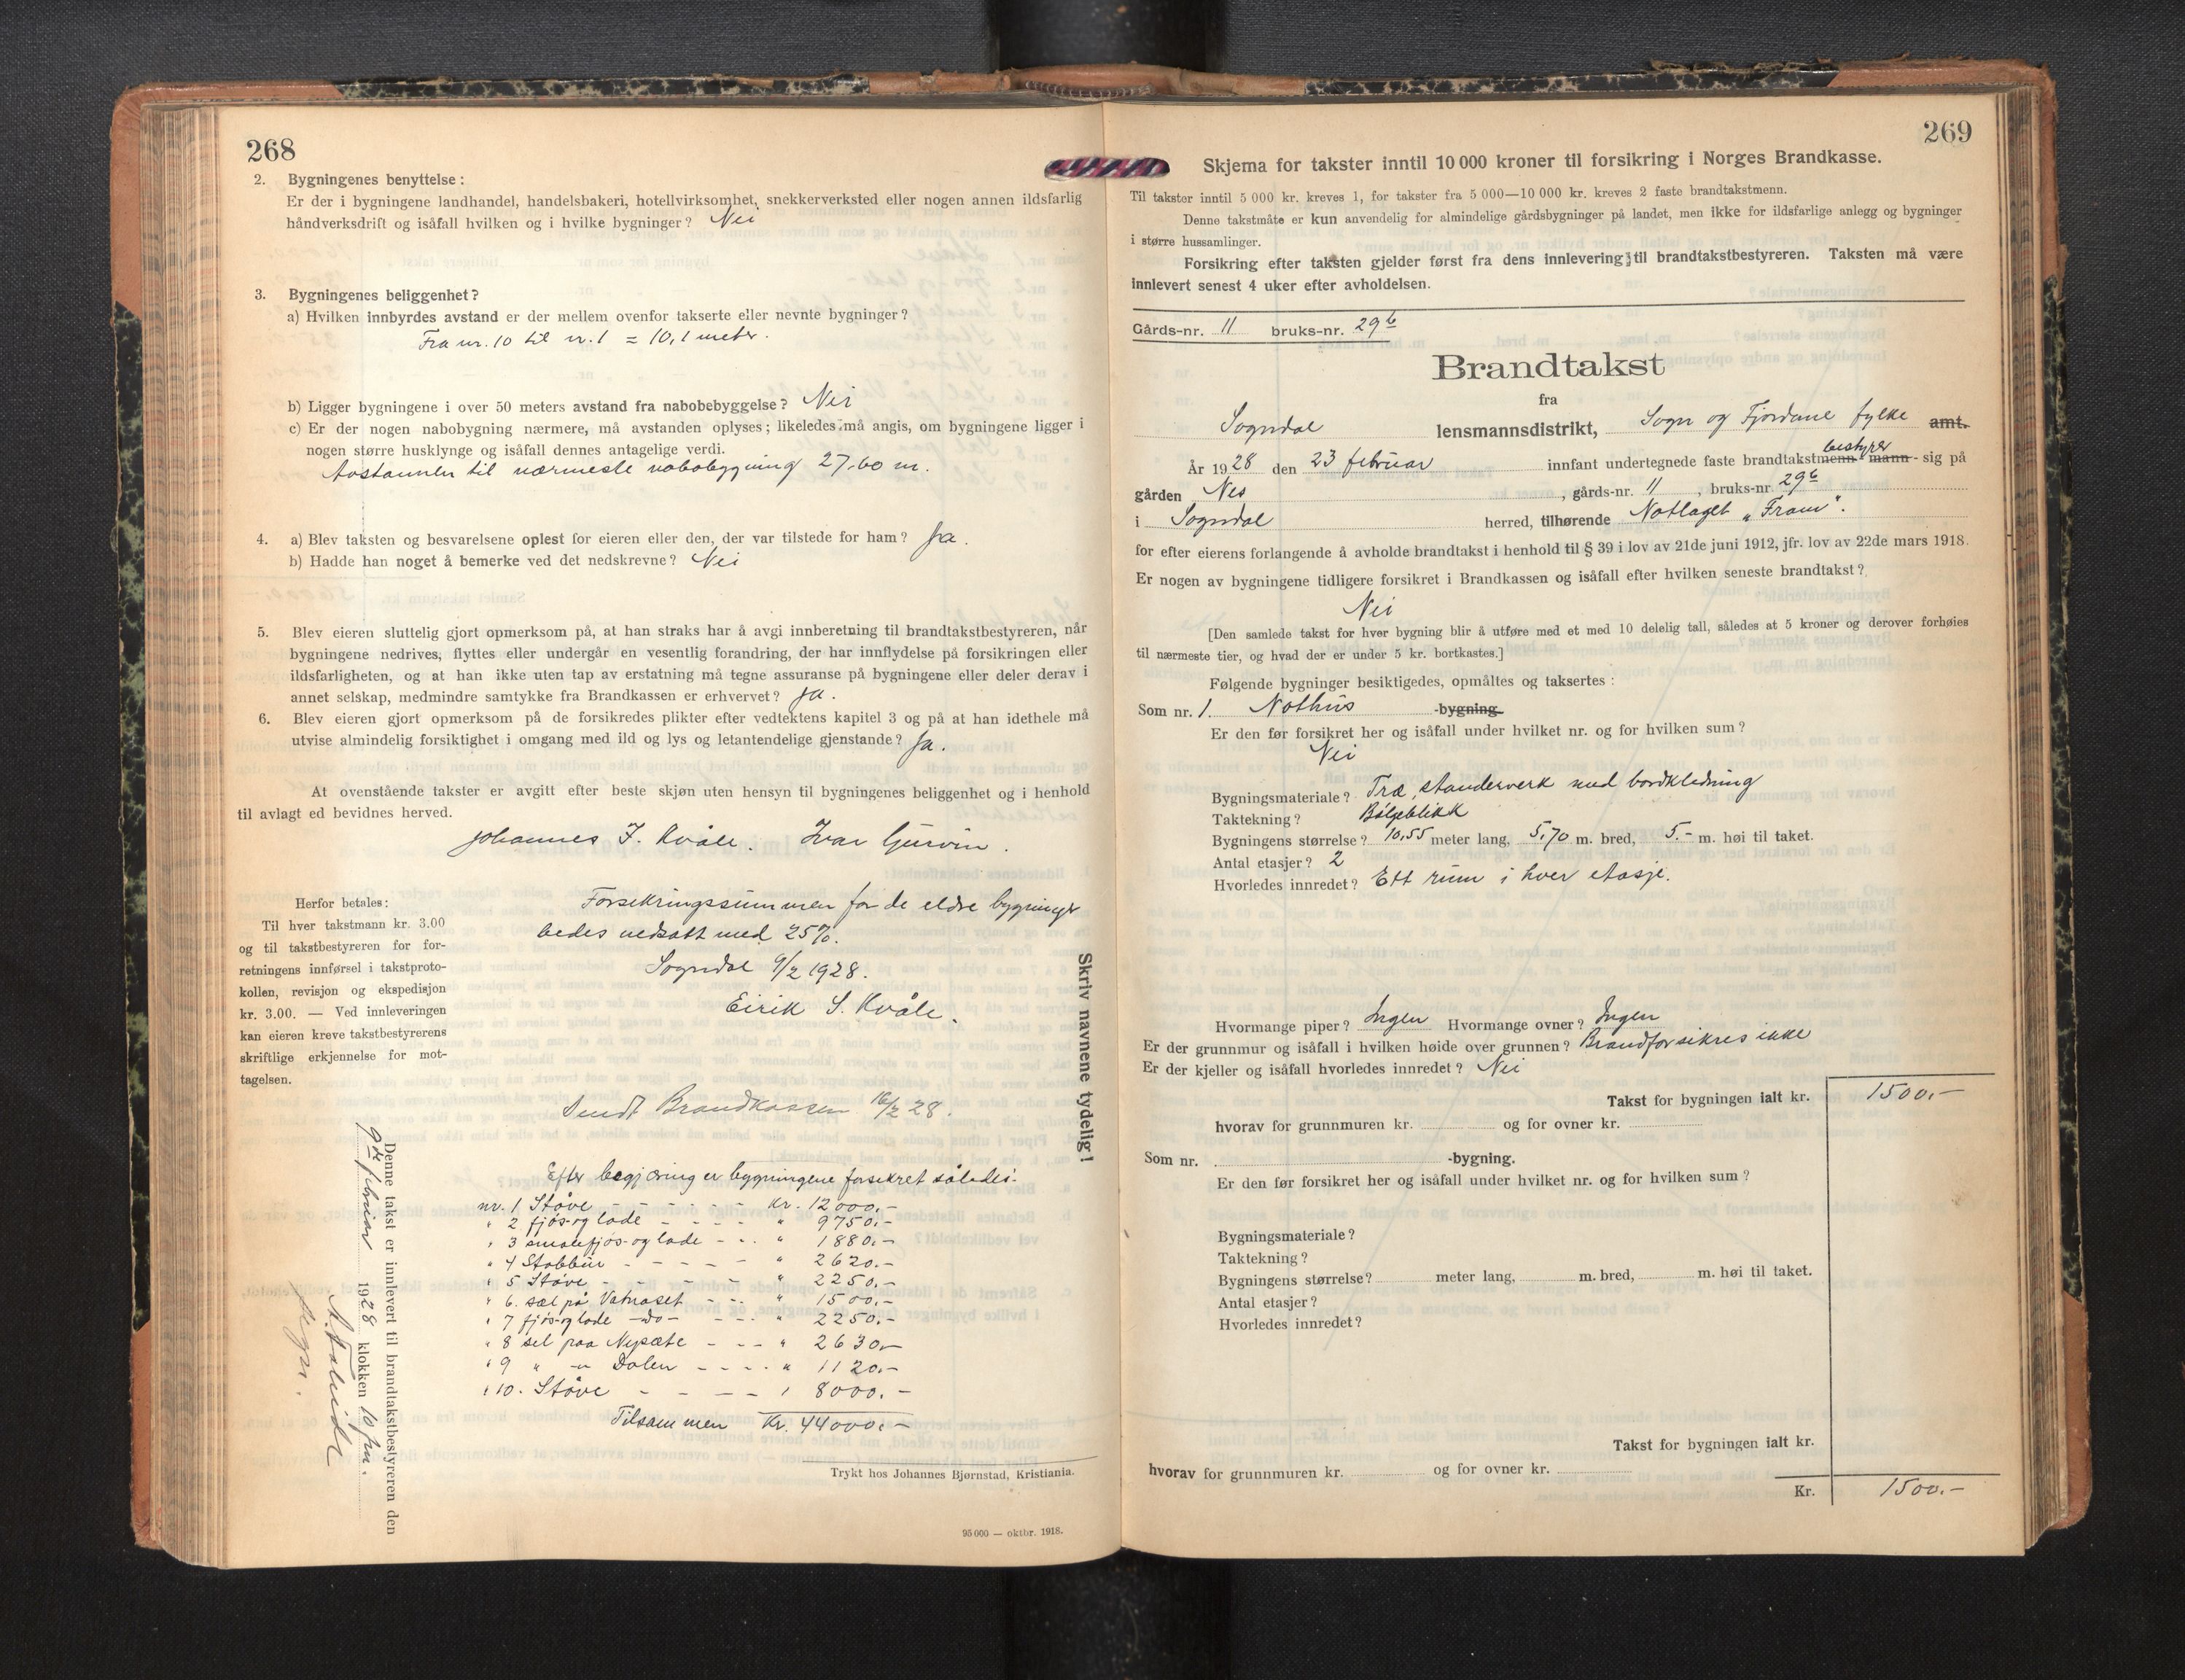 268
2. Bygningenes benyttelse:
Er der i bygningene landhandel, handelsbakeri, hotellvirksomhet, snekkerverksted eller nogen annen ildsfarlig
håndverksdrift og isåfall hvilken og i hvilke bygninger? Nei
3. Bygningenes beliggenhet?
a) Hvilken innbyrdes avstand er der mellem ovenfor takserte eller nevnte bygninger?
Fra nr. 10 til nr. 1 = 10,1 meter.
b) Ligger bygningene i over 50 meters avstand fra nabobebyggelse? Nei
c) Er der nogen nabobygning nærmere, må avstanden oplyses; likeledes må angis, om bygningene ligger i
nogen større husklynge og isåfall dennes antagelige verdi.
Avstannen til nærmeste nabobygning 27,60 m.
4. a) Blev taksten og besvarelsene oplest for eieren eller den, der var tilstede for ham? Ja.
b) Hadde han noget å bemerke ved det nedskrevne? Nei
5. Blev eieren sluttelig gjort opmerksom på, at han straks har å avgi innberetning til brandtakstbestyreren, når
bygningene nedrives, flyttes eller undergår en vesentlig forandring, der har innflydelse på forsikringen eller
ildsfarligheten, og at han ikke uten tap av erstatning må tegne assuranse på bygningene eller deler derav i
annet selskap, medmindre samtykke fra Brandkassen er erhvervet? Ja.
6. Blev eieren gjort opmerksom på de forsikredes plikter efter vedtektens kapitel 3 og på at han idethele må
utvise almindelig forsiktighet i omgang med ild og lys og letantendelige gjenstande? Ja.
At ovenstående takster er avgitt efter beste skjøn uten hensyn til bygningenes beliggenhet og i henhold
til avlagt ed bevidnes herved.
Johannes J. Kvåle. Ivar Gurvin.
Herfor betales:
Til hver takstmann kr. 3.00
og til takstbestyreren for for-
retningens innførsel i takstproto-
kollen, revisjon og ekspedisjon
kr. 3.00. — Ved innleveringen
kan eieren kreve takstbestyrerens
skriftlige erkjennelse for mot-
tagelsen.
Forsekringssummen for de eldre bygninger
bedes nedsatt med 25%.
Sogndal 9/2 1928.
Eirik S. Kvåle.
Sendt Brandkassen 16/2 28.
Skriv navnene tydelig!
Denne takst er innlevert til brandtakstbestyreren den
9de februar 1928 klokken 10 fm.
Efter begjæring er bygningene forsekret således:
nr. 1 Støve - - - - Kr. 12000.-
" 2 fjøs-og lade - - - - " 9750.-
" 3 smalefjøs-og lade - - - " 1880.-
" 4 Stabbur - - - - - " 2620.-
" 5 Støve - - - - " 2250.-
" 6. sæl på Vatnaset - - - " 1500.-
" 7 fjøs-og lade -do- - - - " 2250.-
" 8 sel paa Nysæte - - - " 2630.-
" 9 " -"- Dalen - - - - " 1120.-
" 10. Støve - - - - " 8000.-
Tilsammen Kr. 44000.-
Trykt hos Johannes Bjørnstad, Kristiania.
95 000 — oktbr. 1918.
269
Skjema for takster inntil 10 000 kroner til forsikring i Norges Brandkasse.
Til takster inntil 5 000 kr. kreves 1, for takster fra 5 000—10 000 kr. kreves 2 faste brandtakstmenn.
Denne takstmåte er kun anvendelig for almindelige gårdsbygninger på landet, men ikke for ildsfarlige anlegg og bygninger
i større hussamlinger.
Forsikring efter taksten gjelder først fra dens innlevering til brandtakstbestyreren. Taksten må være
innlevert senest 4 uker efter avholdelsen.
Gårds-nr. 11 bruks-nr. 29 b
Brandtakst
fra
Sogndal lensmannsdistrikt, Sogn og Fjordane fylke amt.
bestyrer
År 1928 den 23 februar innfant undertegnede faste brandtakstmenn mann - sig på
gården Nes, gårds-nr. 11, bruks-nr 29 b
i Sogndal herred, tilhørende Notlaget "Fram".
for efter eierens forlangende å avholde brandtakst i henhold til § 39 i lov av 21de juni 1912, jfr. lov av 22de mars 1918.
Er nogen av bygningene tidligere forsikret i Brandkassen og isåfall efter hvilken seneste brandtakst?
Nei
[Den samlede takst for hver bygning blir å utføre med et med 10 delelig tall, således at 5 kroner og derover forhøies
til nærmeste tier, og hvad der er under 5 kr. bortkastes.]
Følgende bygninger besiktigedes, opmåltes og taksertes:
Som nr. 1. Nothus -bygning.
Er den før forsikret her og isåfall under hvilket nr. og for hvilken sum?
Nei
Bygningsmateriale? Træ, standerverk med bordkledning
Taktekning? Bølgeblikk
Bygningens størrelse? 10,55 meter lang, 5,70 m. bred, 5.- m. høi til taket.
Antal etasjer? 2
Hvorledes innredet? Ett rum i hver etasje.
Hvormange piper? Ingen Hvormange ovner? Ingen
Er der grunnmur og isåfall i hvilken høide over grunnen? Brandforsikres ikke
Er der kjeller og isåfall hvorledes innredet? Nei
Takst for bygningen ialt kr. 1500.-
hvorav for grunnmuren kr. og for ovner kr.
Som nr. -bygning.
Er den før forsikret her og isåfall under hvilket nr. og for hvilken sum?
Bygningsmateriale?
Taktekning?
Bygningens størrelse? meter lang, m. bred, m. høi til taket.
Antal etasjer?
Hvorledes innredet?
Takst for bygningen ialt kr.
hvorav for grunnmuren kr. og for ovner kr.
Kr. 1500.-